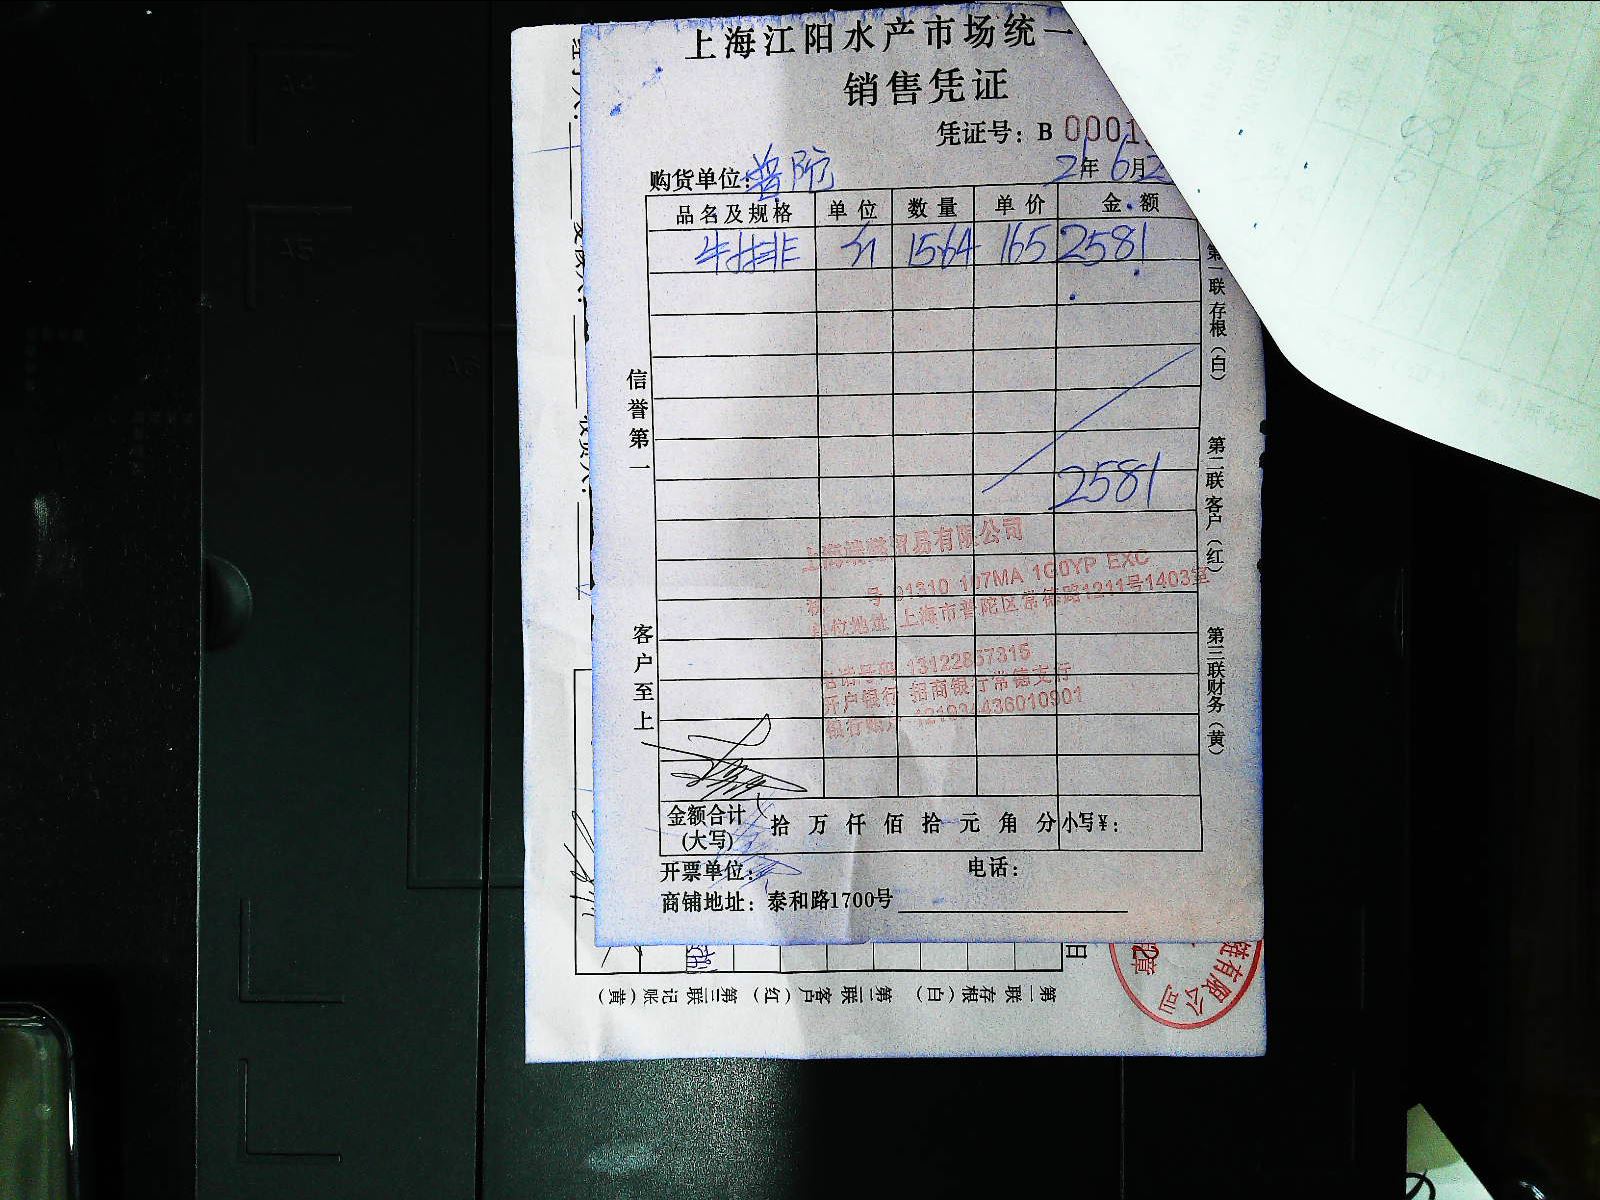 上海江阳水产市场统一
销售凭证
凭证号：B 0001
购货单位：普陀 21年6月2
品名及规格 单位 数量 单价 金额
牛排 斤 1564 165 2581
2581
信誉第一
客户至上
第一联存根（白）
第二联客户（红）
第三联财务（黄）
贸易有限公司
号 91310 107MA 1G0YP EXC
单位地址 上海市普陀区常德路1211号1403室
电话号码 13122857315
开户银行 招商银行常德支行
银行账户 436010901
金额合计(大写) 拾 万 仟 佰 拾 元 角 分 小写¥：
开票单位： 电话：
商铺地址：泰和路1700号
日
第一联 存根（白） 第二联 客户（红） 第三联 记账（黄）
有限公司